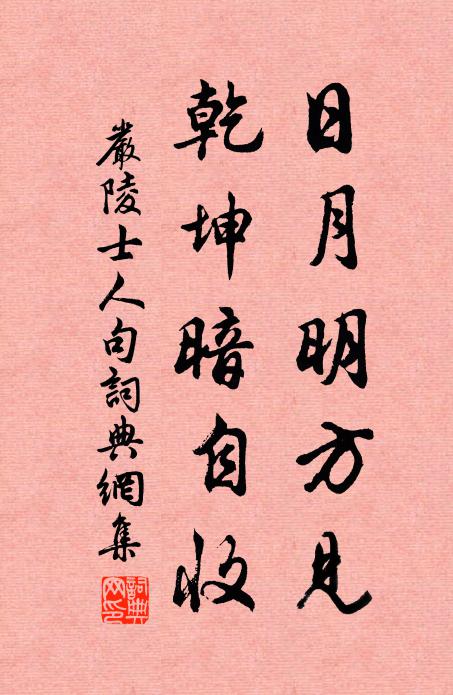 日月明方見
乾坤暗自收
嚴陵士人句詞典網集
詞典
網印